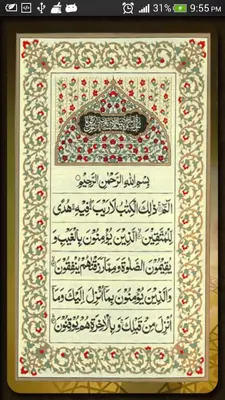 31%
9:55 PM
بِسْمِ اللهِ الرَّحْمٰنِ الرَّحِيْمِ
الٓمّٓ ذٰلِكَ الْكِتٰبُ لَا رَيْبَ فِيْهِ هُدًى
لِّلْمُتَّقِيْنَ الَّذِيْنَ يُؤْمِنُوْنَ بِالْغَيْبِ وَ
يُقِيْمُوْنَ الصَّلٰوةَ وَمِمَّا رَزَقْنٰهُمْ يُنْفِقُوْنَ
وَالَّذِيْنَ يُؤْمِنُوْنَ بِمَآ اُنْزِلَ اِلَيْكَ وَمَآ
اُنْزِلَ مِنْ قَبْلِكَ وَبِالْاٰخِرَةِ هُمْ يُوْقِنُوْنَ